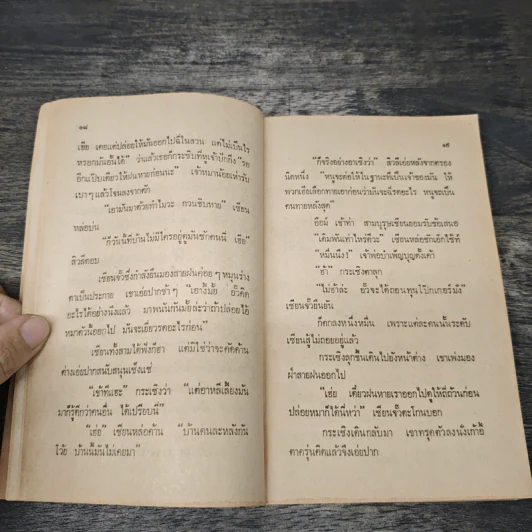 ๑๘
เฮีย เคยแต่ปล่อยให้มันออกไปฉี่ในสวน แต่ไม่เป็นไร
หรอกมันอั้นได้" ว่าแล้วเธอก็กระซิบที่หูเจ้าบักถึง "รอ
อีกแป๊บเดียวให้ฝนหายก่อนนะ" เจ้าหมาน้อยเห่ารับ
เบาๆ แล้วโจนลงจากตัก
"เอามันมาด้วยทำไมวะ กวนชิบหาย" เซียน
หล่อบ่น
"ก็วันนี้ที่บ้านไม่มีใครอยู่ดูมันซักคนนี่ เฮีย"
ลิวลี่ตอบ
เซียนจั๊วซึ่งกำลังยืนมองสายฝนค่อยๆ หมุนร่าง
ตาเป็นประกาย เขาเอ่ยปากช้าๆ
อะไรได้อย่างนึงแล้ว มาพนันกันมั้ยล่ะว่าถ้าปล่อยไอ้
หมาตัวนี้ออกไป มันจะเยี่ยวรดอะไรก่อน"
เซียนทั้งสามได้ฟังก็ฮา แต่มิใช่ว่าจะคัดค้าน
ต่างเอ่ยปากสนับสนุนเซ็งแซ่
กระเซิงว่า "แต่อาหลีเลี้ยงมัน
มาก็รู้ดีกว่าคนอื่น ได้เปรียบนี่"
"เฮ่ย" เซียนหล่อค้าน "บ้านคนละหลังกัน
โว้ย บ้านนี้มันไม่เคยมา"
๑๙
"ก็จริงอย่างอาเซิงว่า" ลิวลี่เอ่ยหลังจากตรอง
นิดหนึ่ง "หนูจะต่อให้ในฐานะที่เป็นเจ้าของมัน ให้
พวกเฮียเลือกทายเอาก่อนว่ามันจะฉี่รดอะไร หนูจะเป็น
คนทายหลังสุด"
อืออ์ เข้าท่า สามบุรุษเซียนยอมรับข้อเสนอ
"เดิมพันเท่าไหร่ดีวะ" เซียนหล่อชักเอ๊กไซ้ท์
"หมื่นนึง!" เจ้าพ่อบำเพ็ญบุญตั้งเค้า
"ฮ้า" กระเซิงตาลุก
"ไม่อ้าล่ะ อั๊วจะได้ถอนทุนโป๊กเกอร์มั่ง"
เซียนจั๊วยืนยัน
ก็ตกลงหนึ่งหมื่น เพราะแต่ละคนนั้นระดับ
เซียนสู้ไม่ถอยอยู่แล้ว
กระเซิงลุกขึ้นเดินไปยังหน้าต่าง เขาเพ่งมอง
ฝ่าสายฝนออกไป
"เฮ่ย เดี๋ยวฝนหายเราออกไปดูให้ถี่ถ้วนก่อน
ปล่อยหมาก็ได้นี่หว่า" เซียนจั๊วตะโกนบอก
กระเซิงเดินกลับมา เขาทรุดตัวลงนั่งเก้าอี้
ตาครุ่นคิดแล้วจึงเอ่ยปาก